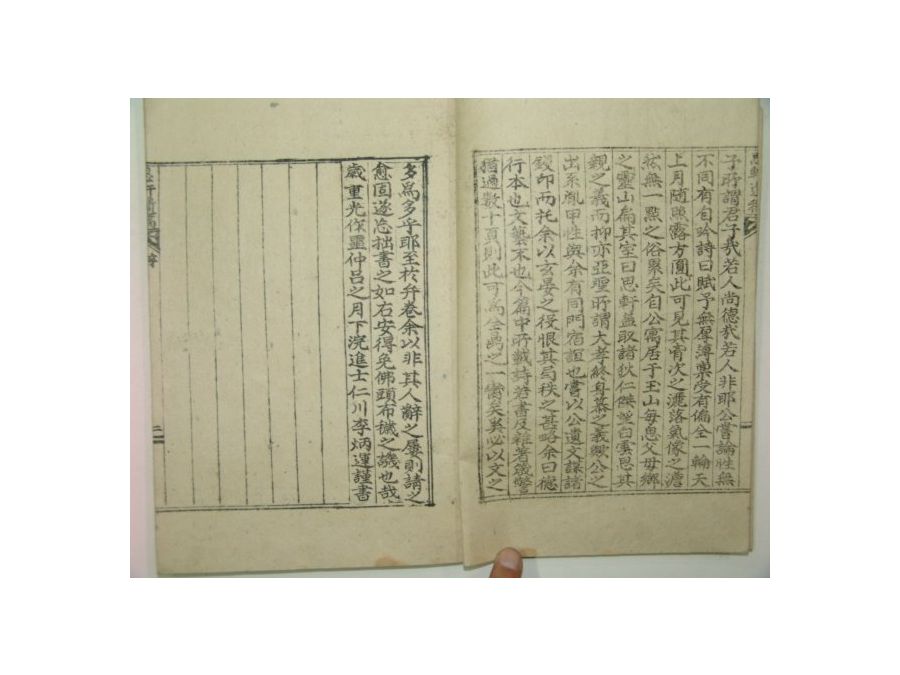 子所謂君子哉若人尚德哉若人非耶公嘗論性無
不同有自吟詩曰賦予無厚薄稟受有偏全一輪天
上月随照露方圓此可見其胷次之灑落氣像之澹
然無一點之俗累矣自公寓居于玉山每思父母鄉
之靈山扁其室曰思軒盖取諸狄仁傑望白雲思其
親之義而抑亦亞聖所謂大孝終身慕之義歟公之
出系胤甲性與余有同門宿誼也嘗以公遺文謀諸
鋟印而托余以玄晏之役恨其局秩之甚略余曰德
行本也文藝末也今篇中所載詩若書及雜著箴警
猶過數十頁則此可爲全鼎之一臠矣奚必以文之
多爲多乎耶至於弁卷余以非其人辭之屢則請之
愈固遂忘拙書之如右安得免佛頭布穢之譏也哉
歲重光作噩仲呂之月下浣進士仁川李炳運謹書
二